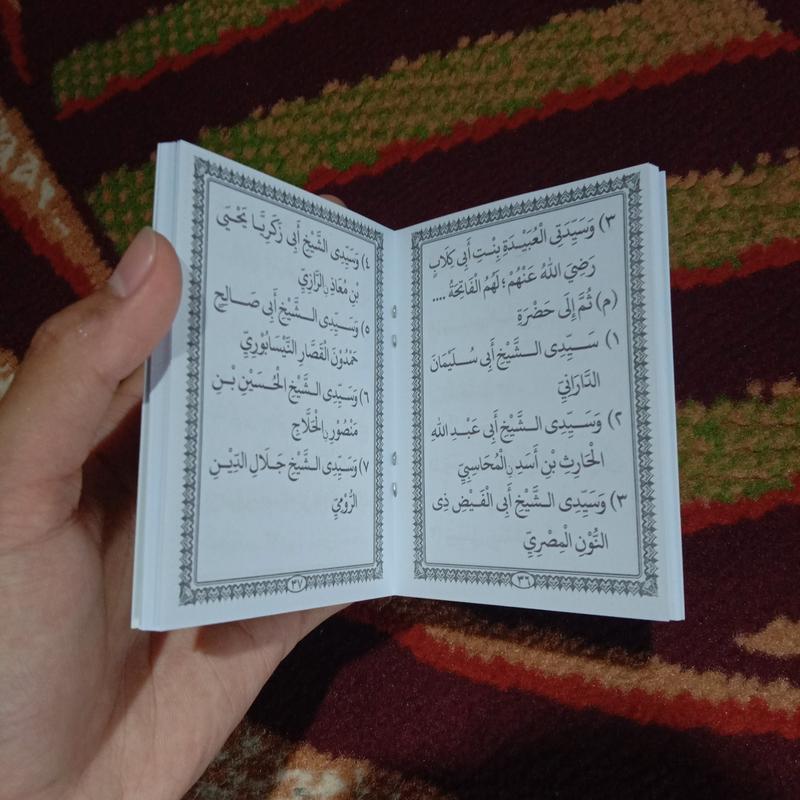 ٣) وَسَيِّدَتِى الْعُبَيْدَةِ بِنْتِ أَبِى كِلَابٍ
رَضِيَ اللهُ عَنْهُمْ؛ لَهُمُ الْفَاتِحَةُ ....
(م) ثُمَّ إِلَى حَضْرَةِ
١) سَـيِّدِى الـشَّيْخِ أَبِى سُـلَيْمَانَ
الدَّارَانِيِّ
٢) وَسَـيِّدِى الـشَّيْخِ أَبِى عَبْـدِ اللهِ
الْحَارِثِ بْنِ أَسَدِ ۣالْمُحَاسِبِيِّ
٣) وَسَيِّدِى الـشَّيْخِ أَبِى الْفَـيْضِ ذِى
النُّوْنِ الْمِصْرِيِّ
٣٦
٤) وَسَيِّدِى الشَّيْخِ أَبِى زَكَرِيَّـا يَحْيَى
بْنِ مُعَاذِ ۣالرَّازِيِّ
٥) وَسَـيِّدِى الـشَّيْخِ أَبِى صَـالِحٍ
حَمْدُوْنَ الْقَصَّارِ النَّيْسَابُوْرِيِّ
٦) وَسَـيِّدِى الـشَّيْخِ الْحُسَيْنِ بْـنِ
مَنْصُوْرِ ۣالْحَلَّاجِ
٧) وَسَيِّدِى الـشَّيْخِ جَـلَالِ الدِّيْـنِ
الرُّوْمِيِّ
٣٧